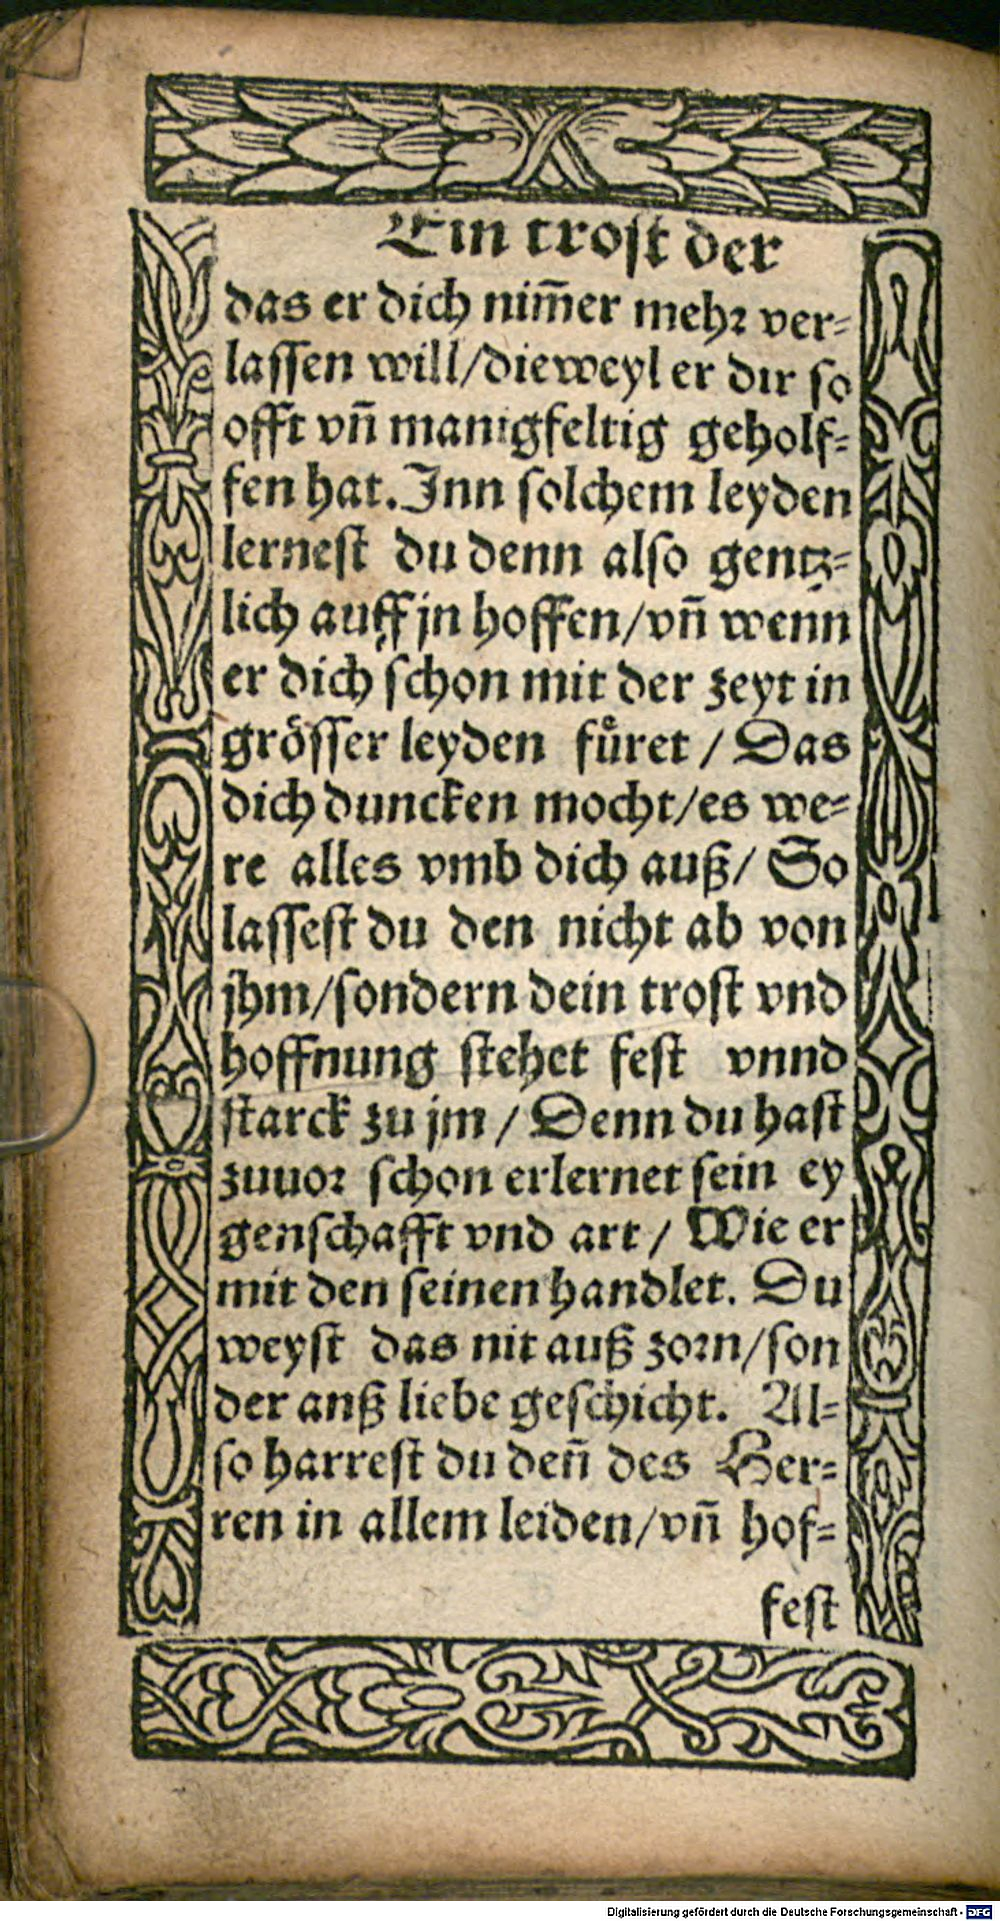 Ein trost der
das er dich nim̄er mehr ver-
lassen will/dieweyl er dir so
offt vn̄ manigfeltig geholf-
fen hat. Jnn solchem leyden
lernest du denn also gentz-
lich auff jn hoffen/vn̄ wenn
er dich schon mit der zeyt in
grösser leyden fůret / Das
dich duncken mocht/es we-
re alles vmb dich auß/ So
lassest du den nicht ab von
jhm/sondern dein trost vnd
hoffnung stehet fest vnnd
starck zu jm / Denn du hast
zuuor schon erlernet sein ey
genschafft vnd art / Wie er
mit den seinen handlet. Du
weyst das nit auß zorn/son
der anß liebe geschicht. Al-
so harrest du den̄ des Her-
ren in allem leiden/vn̄ hof-
fest
Digitalisierung gefördert durch die Deutsche Forschungsgemeinschaft - DFG